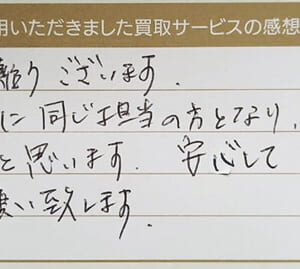 用いただきました買取サービスの感想
難う ございます。
に 同じ担当の方となり、
と思います。 安心して
願い致します。